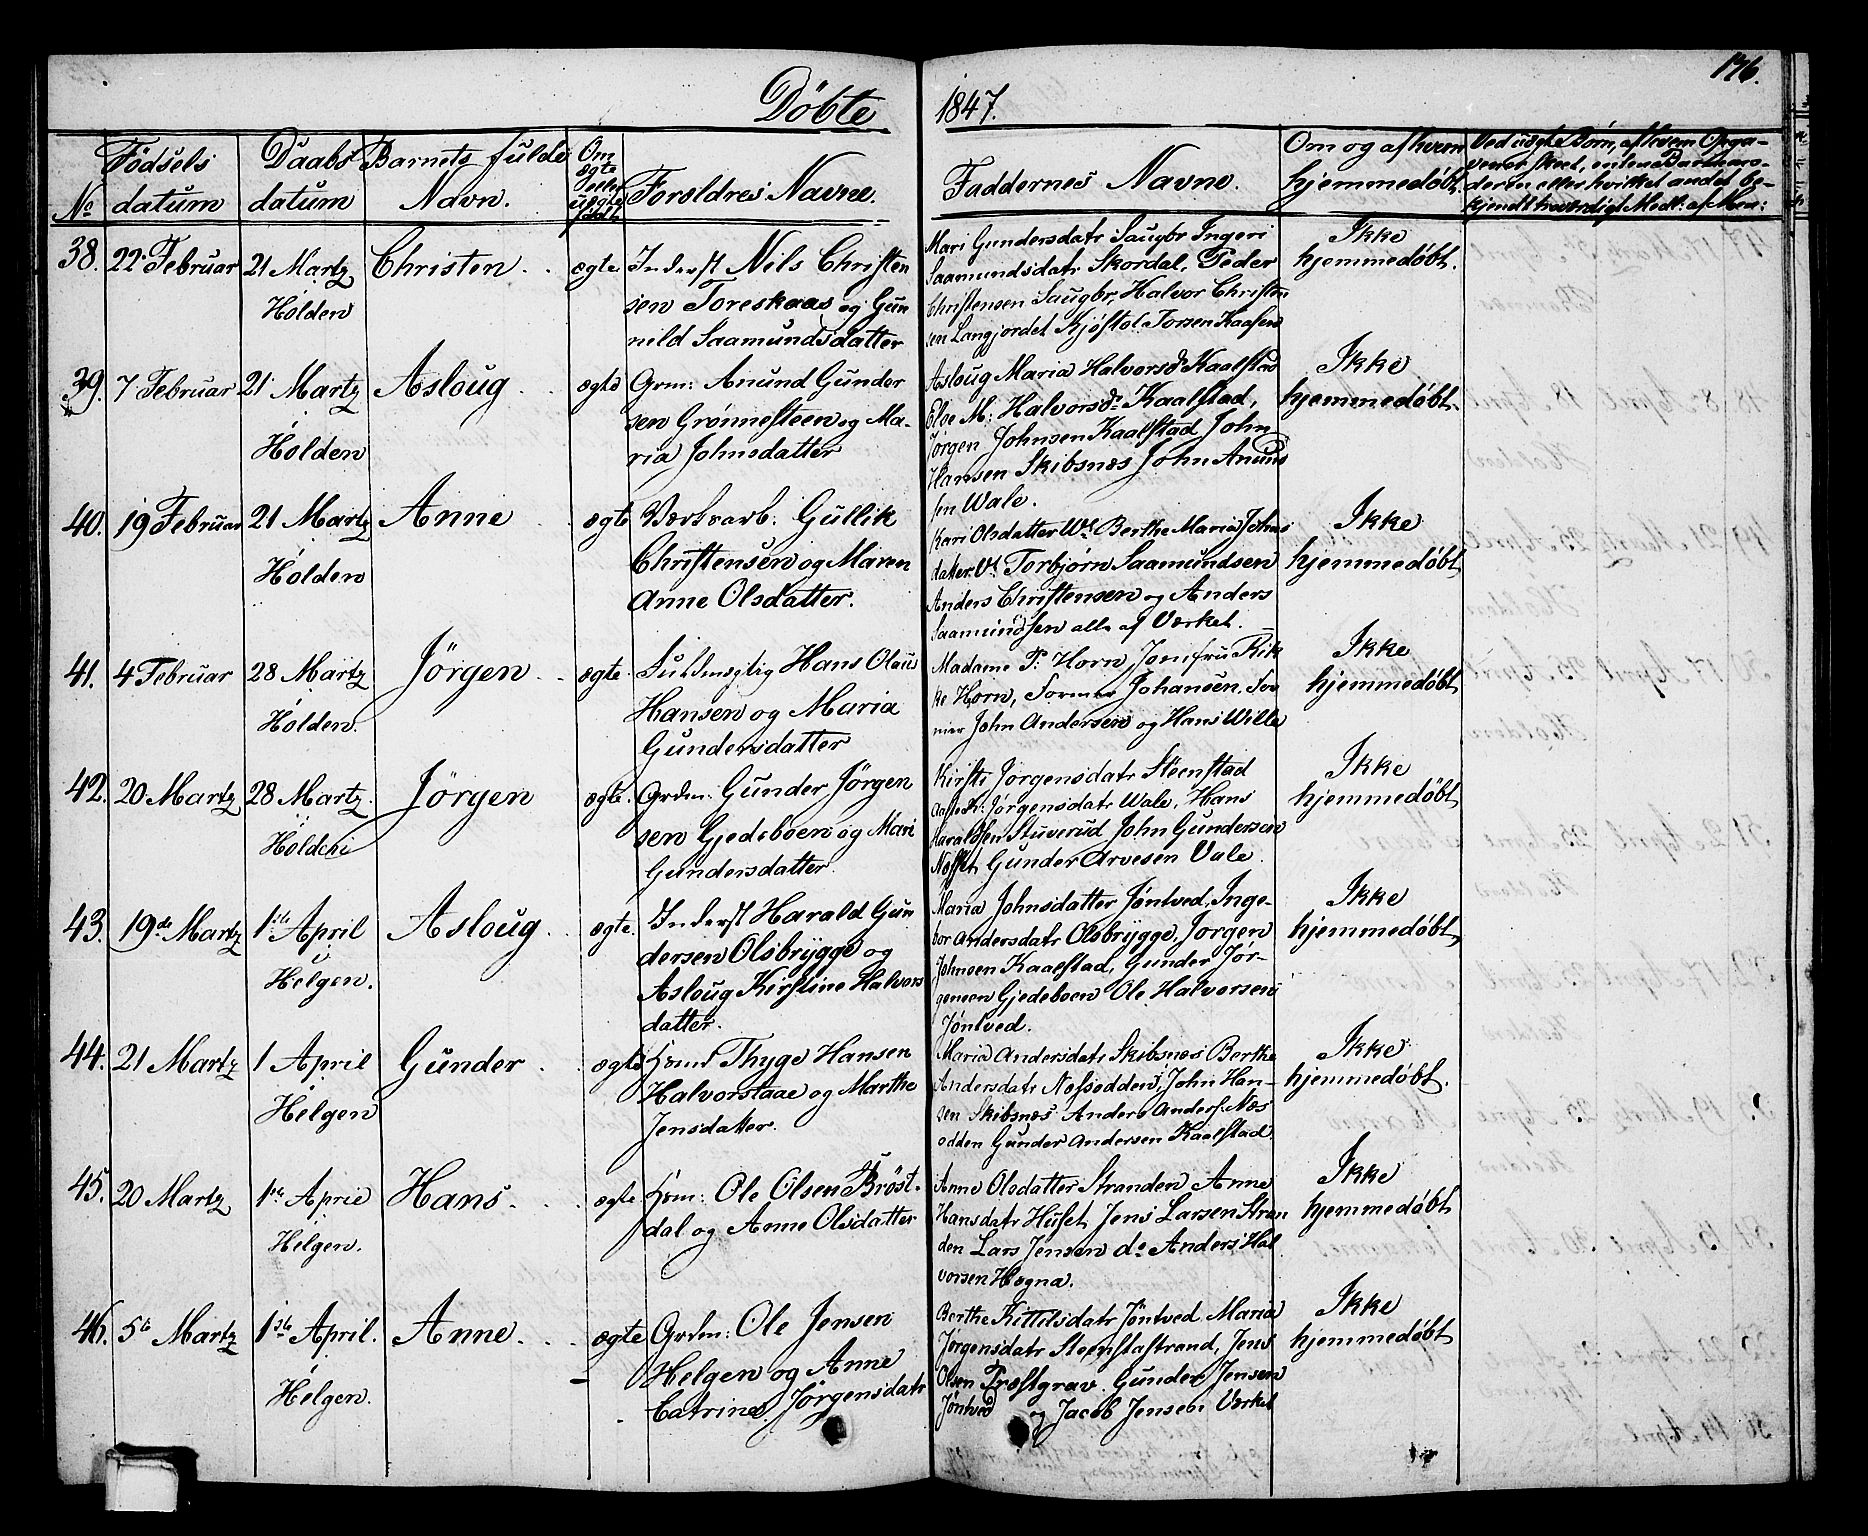 176.
Döbte 1847.
No
Födsels datum
Daabs datum
Barnets fulde Navn.
Om ægte eller uægte födt
Foreldres Navne.
Faddernes Navne.
Om og af hvem hjemmedöbt
Ved uægte Børn, af hvem Opga-
38. 22 Februar
21 Martz Holden
Christen
ægte
Inderst Nils Christen
sen Toreskaas og Gun
nild Saamundsdatter
Mari Gundersdatr Saugbr Ingeri
Saamundsdatr Skordal, Peder
Christensen Saugbr, Halvor Christen
sen Langjordet Kjöstol Torsen Kaasen
Ikke
hjemmedöbt.
39. 7 Februar
21 Martz Holden
Asloug
ægte
Grm: Anund Gunder
sen Grönnesteen og Ma-
ria Johnsdatter
Asloug Maria Halvorsdr Kaalstad
Else M: Halvorsdr Kaalstad,
Jörgen Johnsen Kaalstad John
Hansen Skibsnæs John Anund
sen Wale.
Ikke
hjemmedöbt.
40. 19 Februar
21 Martz Holden
Anne
ægte
Værksarb: Gullik
Christensen og Maren
Anne Olsdatter.
Kari Olsdatter Wt Berthe Maria Johns
datter Vt Torbjörn Saamundsen
Anders Christensen og Anders
Saamundsen alle af Værket.
Ikke
hjemmedöbt
41. 4 Februar
28 Martz Holden.
Jörgen
ægte.
Fuldmægtig Hans Olaus
Hansen og Maria
Gundersdatter
Madame P: Horn, Jomfru Rik
ke Horn, Former Johansen, For
mer John Andersen og Hans Wille
Ikke
hjemmedöbt
42. 20 Martz
28 Martz Holden
Jörgen
ægte.
Grdm: Gunder Jörgen
sen Gjedeboen og Mari
Gundersdatter
Kirsti Jörgensdatr Steenstad
Jörgensdatr Wale, Hans
Haraldsen Stuverud John Gundersen
Næsset, Gunder Arvesen Vale.
Ikke
hjemmedöbt
43. 19de Martz
1ste April Helgen.
Asloug
ægte.
Inderst Harald Gun
dersen Olsbrygge og
Asloug Kirstine Halvors
datter.
Maria Johnsdatter Jöntved, Inge-
bor Andersdatr Olsbrygge, Jörgen
Johnsen Kaalstad, Gunder Jör-
gensen Gjedeboen Ole Halvorsen
Jöntved.
Ikke
hjemmedöbt
44. 21 Martz
1 April Helgen
Gunder
ægte
Thyge Hansen
Halvorstaae og Marthe
Jensdatter.
Maria Andersdatr Skibsnæs Berthe
Andersdatr Næsodden, John Han-
sen Skibsnæs Anders Anders. Næs
odden Gunder Andersen Kaalstad
Ikke
hjemmedöbt.
45. 20 Martz
1ste April Helgen.
Hans
ægte
Hsm: Ole Olsen Bröst-
dal og Anne Olsdatter
Anne Olsdatter Stranden Anne
Hansdatr Huset, Jens Larsen Stran
den Lars Jensen do Anders Hal
vorsen Hægna.
Ikke
hjemmedöbt
46. 5te Martz
1ste April. Helgen.
Anne
ægte
Grdm: Ole Jensen
Helgen og Anne
Catrine Jörgensdatr
Berthe Kittilsdatr Jöntved Maria
Jörgensdatr Steenstastrand, Jens
Olsen Præstgrav. Gunder Jensen
Jöntved og Jacob Jensen Værket
Ikke
hjemmedöbt